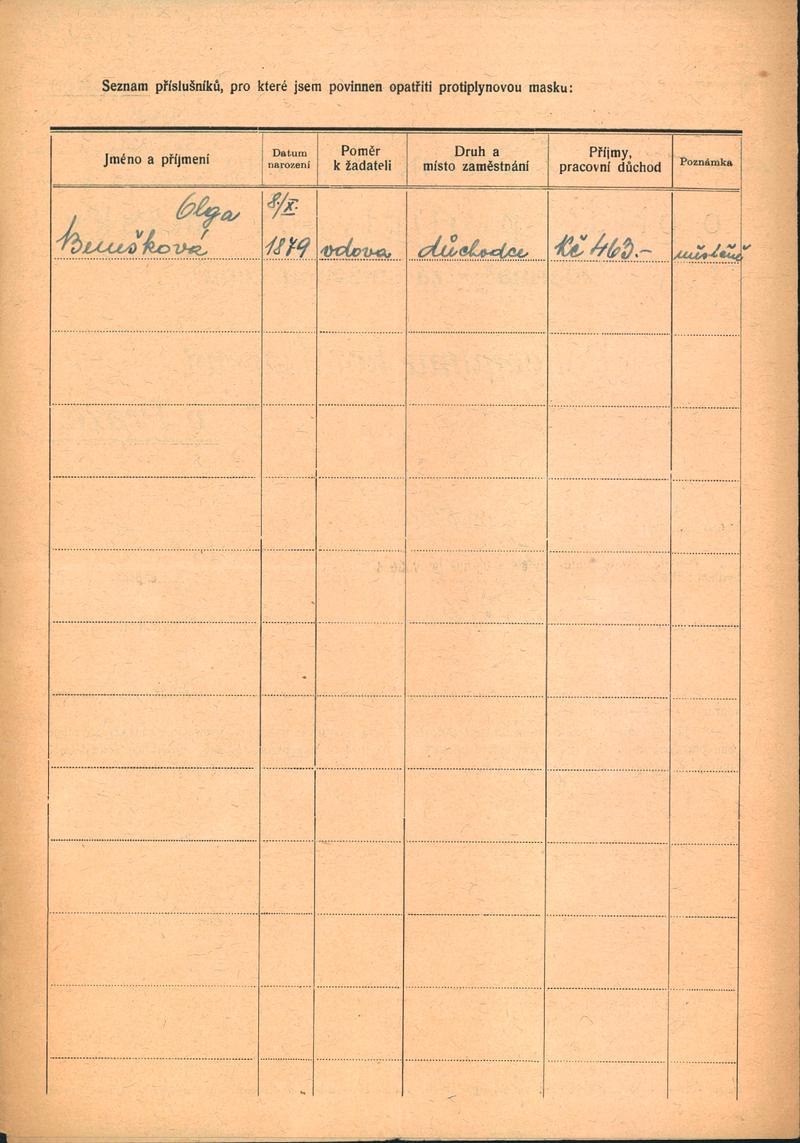 Seznam příslušníků, pro které jsem povinnen opatřiti protiplynovou masku:
Jméno a příjmení
Datum narození
Poměr k žadateli
Druh a místo zaměstnání
Příjmy, pracovní důchod
Poznámka
Olga 8./X.
Benešková 1879 vdova důchodce Kč 463.- měsíčně